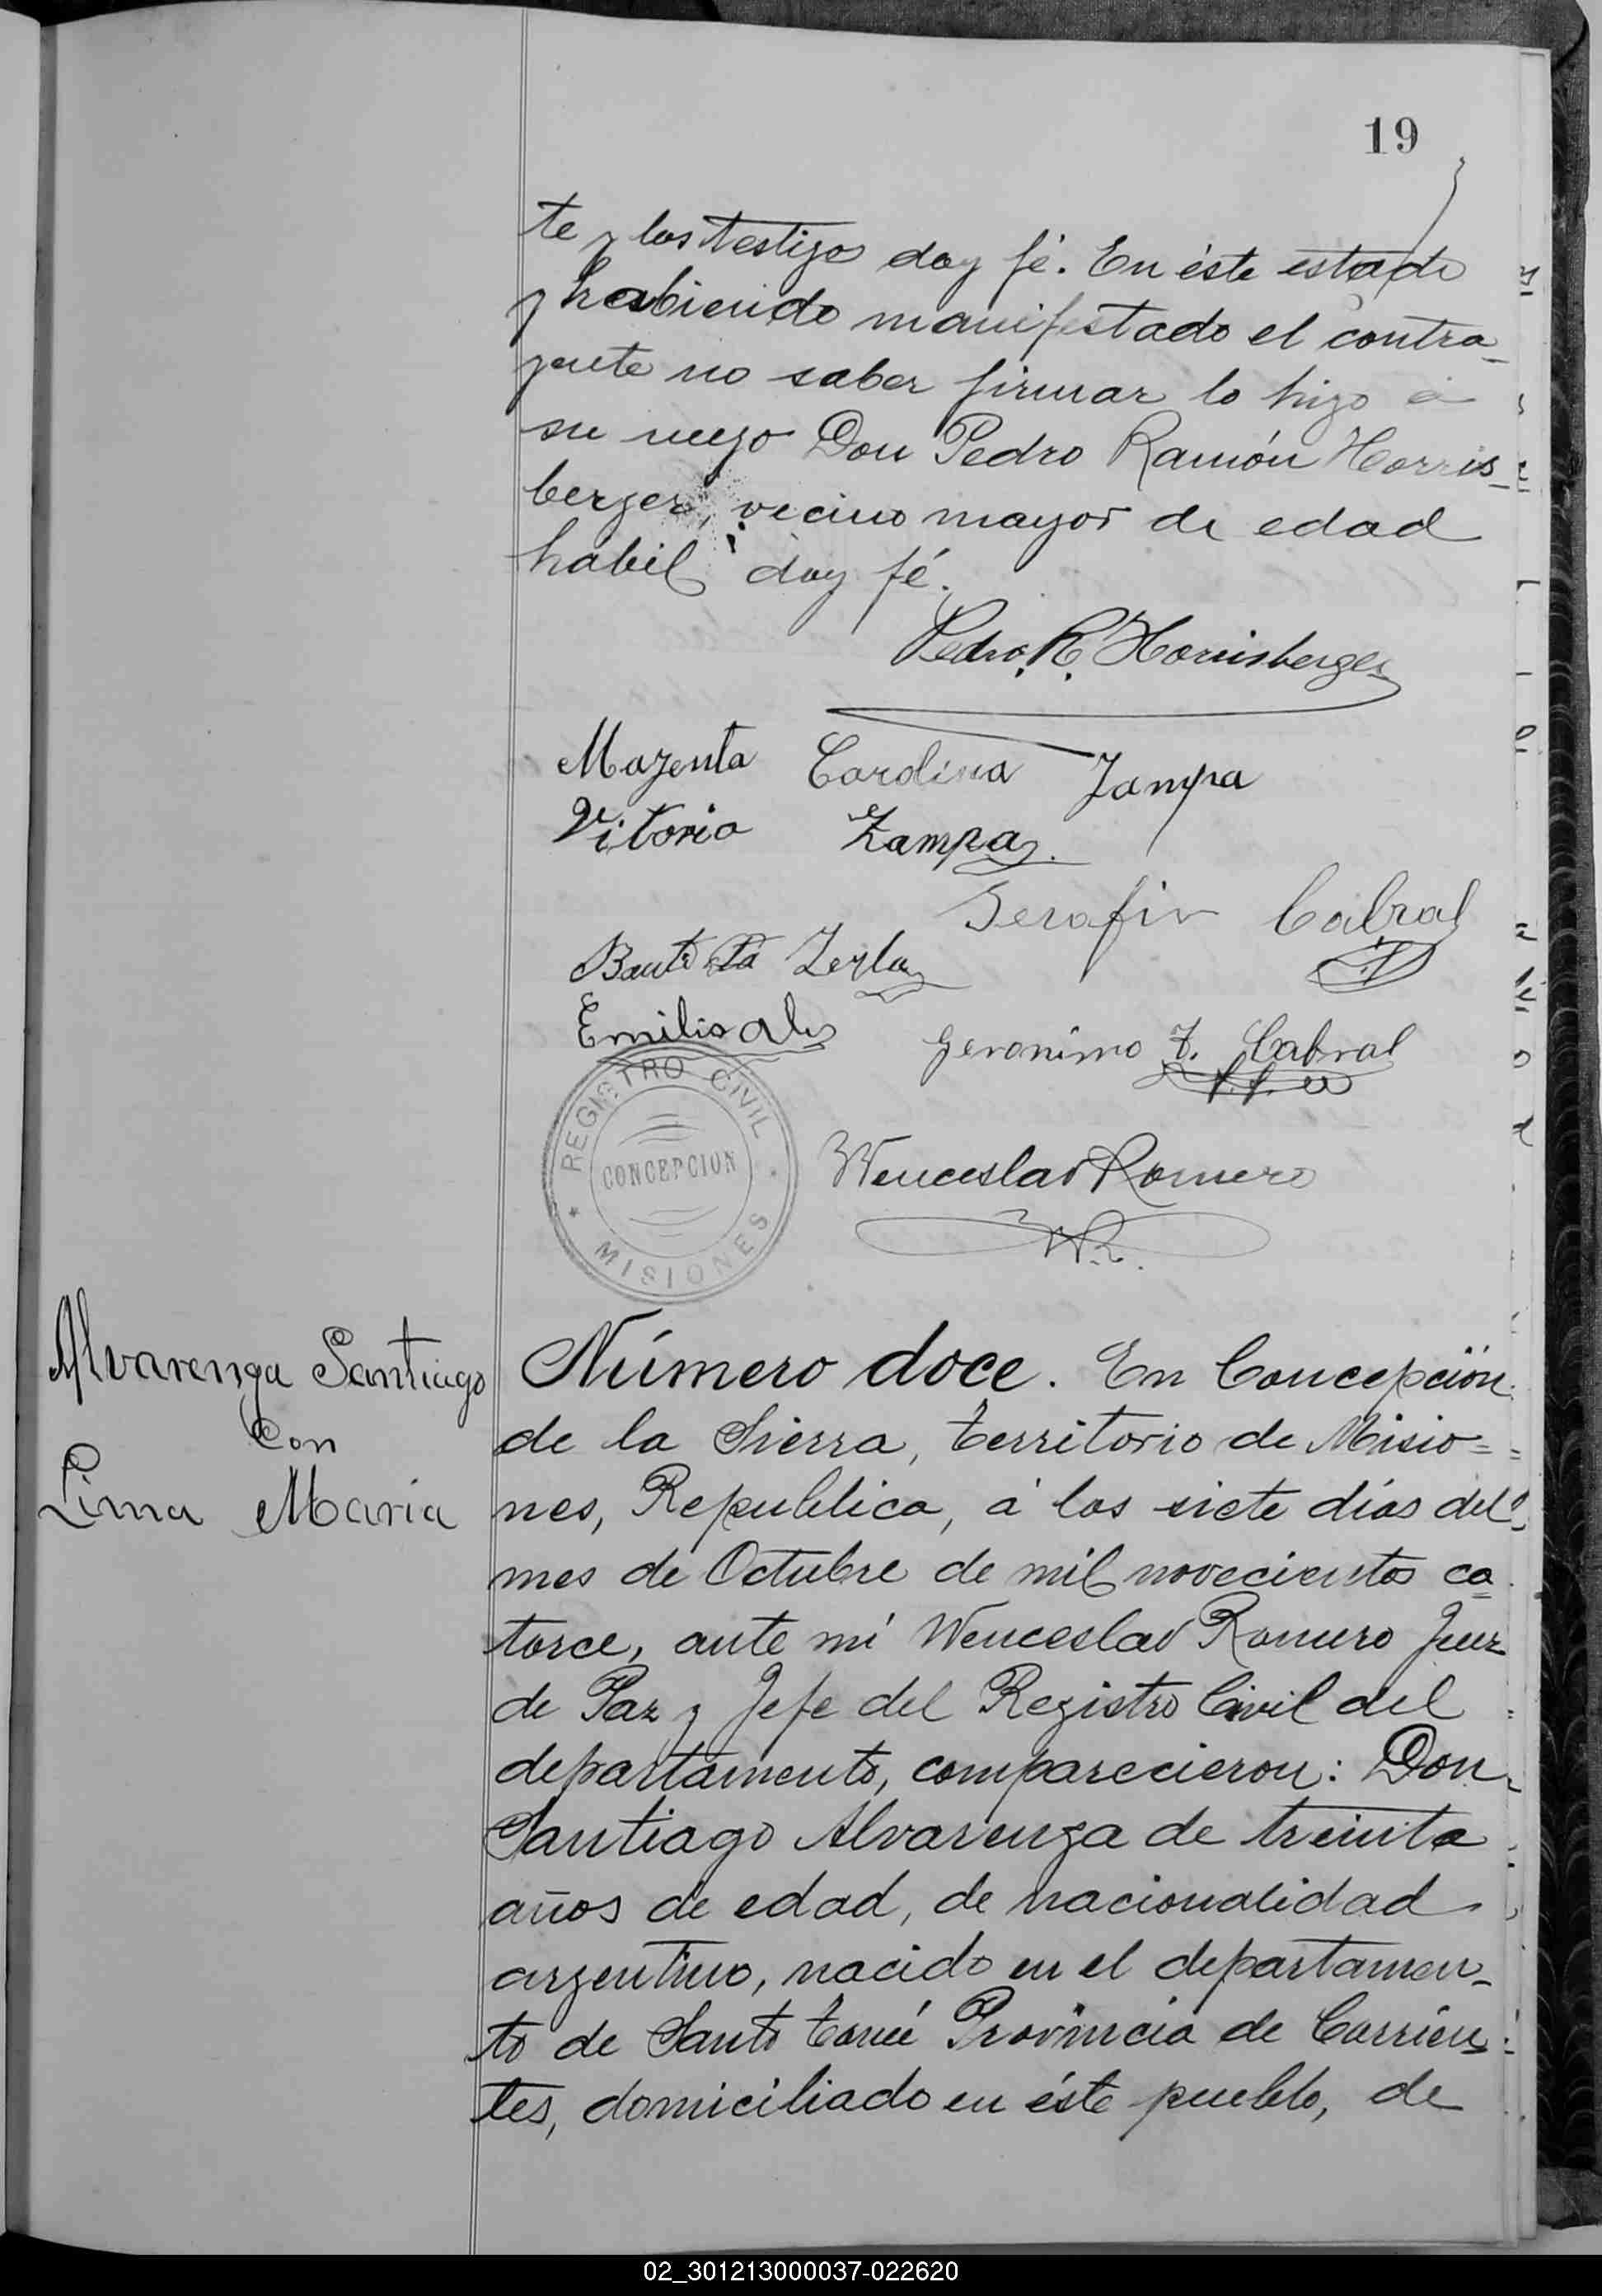 19
te y los testigo doy fé. En éste estado
y habiendo manifestado el contra-
yente no saber firmar lo hizo á
su ruego Don Pedro Ramón Horris-
berger, vecino mayor de edad
habil doy fé.
Pedro. R. Horrisberger
Magenta Carolina Zampa
Vitorio Zampa.
Serafin Cabral
Bautista Zerla
Emilio
Geronimo F. Cabral
REGISTRO CIVIL
CONCEPCION
MISIONES
Wenceslao Romero
W.R.
Alvarenga Santiago
Con
Lima Maria
Número doce. En Concepción
de la Sierra, territorio de Misio=
nes, Republica, á los siete días del
mes de Octubre de mil novecientos ca
torce, ante mí Wenceslao Romero Juez
de Paz y Jefe del Registro Civil del
departamento, comparecieron: Don
Santiago Alvarenga de treinta
años de edad, de nacionalidad
argentino, nacido en el departamen-
to de Santo tomé Provincia de Corrien
tes, domiciliado en éste pueblo, de
02_301213000037-022620